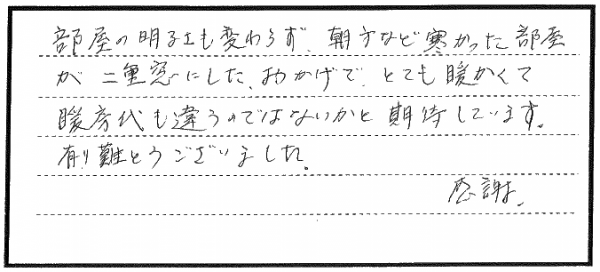 部屋の明るさも変わらず、朝方など寒かった部屋
が二重窓にした、おかげで、とても暖かくて
暖房代も違うのではないかと期待しています。
有り難とうございました。
感謝、